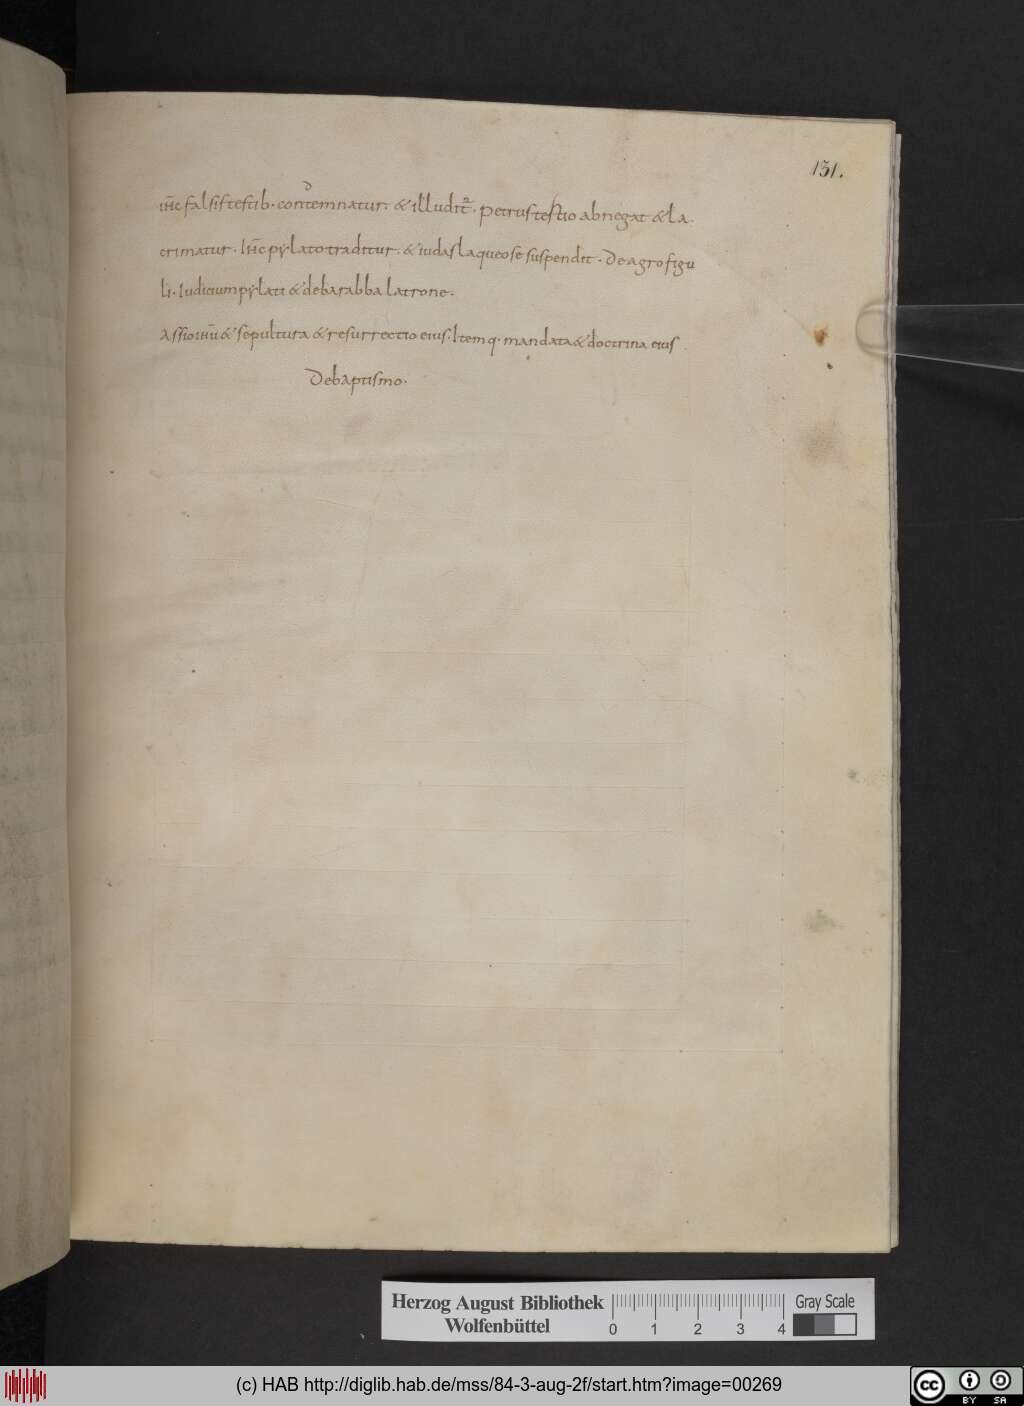 131.
ihc falsis testib. contemnatur. & illudit᷑. petrus tertio abnegat & la
d
crimatur. Ihc pylato traditur. & iudas laqueo se suspendit. De agro figu
li. Iudicium pylati & de barabba latrone.
Assio ihu & sepultura & resurrectio eius. Itemq. mandata & doctrina eius
De baptismo.
Herzog August Bibliothek
Wolfenbüttel
0 1 2 3 4
Gray Scale
(c) HAB http://diglib.hab.de/mss/84-3-aug-2f/start.htm?image=00269
cc BY SA